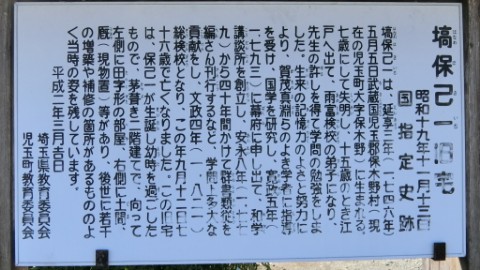 塙保己一旧宅
はなわ ほ き いち
国指定史跡
昭和十九年十一月十三日
塙保己一は、延享三年(一七四六年)
五月五日武蔵国児玉郡保木野村(現
在の児玉町大字保木野)に生まれる。
七歳にして失明し、十五歳のとき江
戸へ出て、雨富検校の弟子になり、
先生の許しを得て学問の勉強をしま
した。生来の記憶力のよさと努力に
より、賀茂真淵らのよき学者に指導
を受け、国学を研究し、寛政五年(
一七九三)に幕府に申し出て、和学
講談所を創立し、安永八年(一七七
九)から四十年間かけて群書類従を
編さん刊行するなど、学問上多大な
貢献をし、文政四年(一八二一)
総検校となり、この年九月十二日七
十六歳で亡くなりました。この旧宅
は、保己一が生誕し幼時を過ごした
もので、茅葺き二階建てで、向って
左側に田字形の部屋、右側に土間、
厩(現物置)等があり、後世に若干
の増築や補修の箇所があるもののよ
く当時の姿を残しています。
平成二年三月吉日
埼玉県教育委員会
児玉町教育委員会